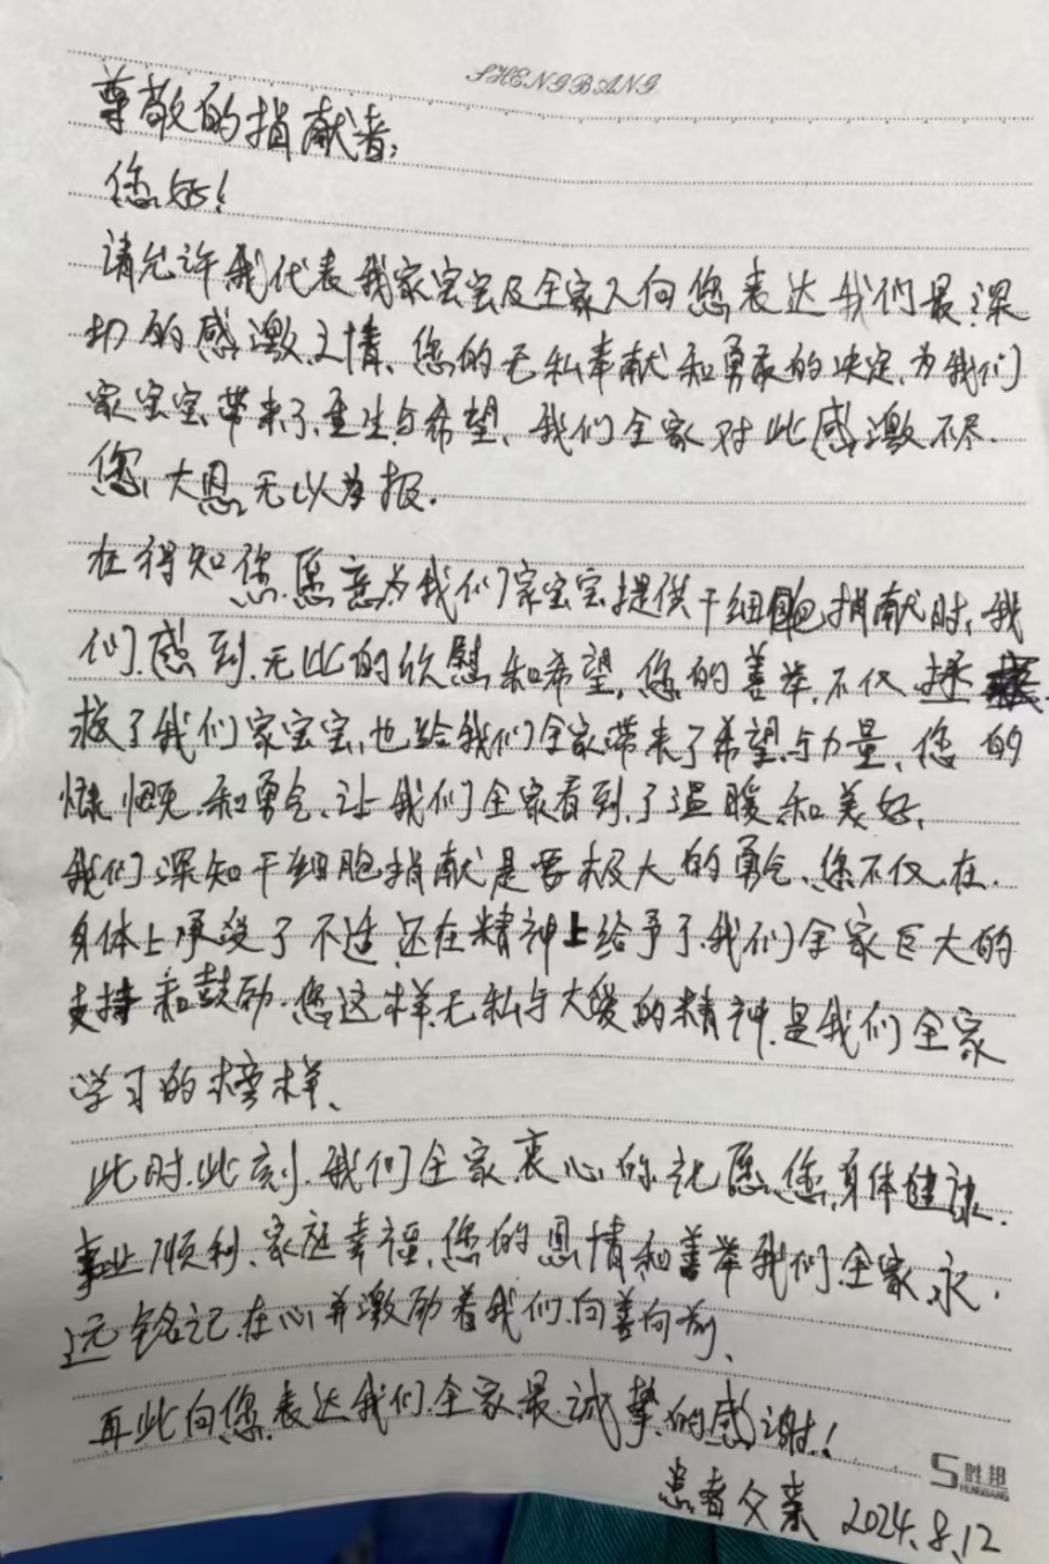 SHENGBANG
尊敬的捐献者:
您好!
请允许我代表我家宝宝及全家人向您表达我们最深
切的感激之情、您的无私奉献和勇敢的决定、为我们
家宝宝带来了重生与希望、我们全家对此感激不尽.
您大恩无以为报.
在得知您愿意为我们家宝宝提供干细胞捐献时、我
们感到无比的欣慰和希望,您的善举不仅拯
救了我们家宝宝、也给我们全家带来了希望与力量、您的
慷慨和勇气、让我们全家看到了温暖和美好、
我们深知干细胞捐献是要极大的勇气、您不仅在
身体上承受了不适还在精神上给予了我们全家巨大的
支持和鼓励.您这样无私与大爱的精神是我们全家
学习的榜样、
此时此刻、我们全家衷心的祝愿您身体健康.
事业顺利、家庭幸福、您的恩情和善举我们全家永
远铭记在心并激励着我们向善向前、
再此向您表达我们全家最诚挚的感谢!
胜邦
SHENGBANG
患者父亲 2024.8.12